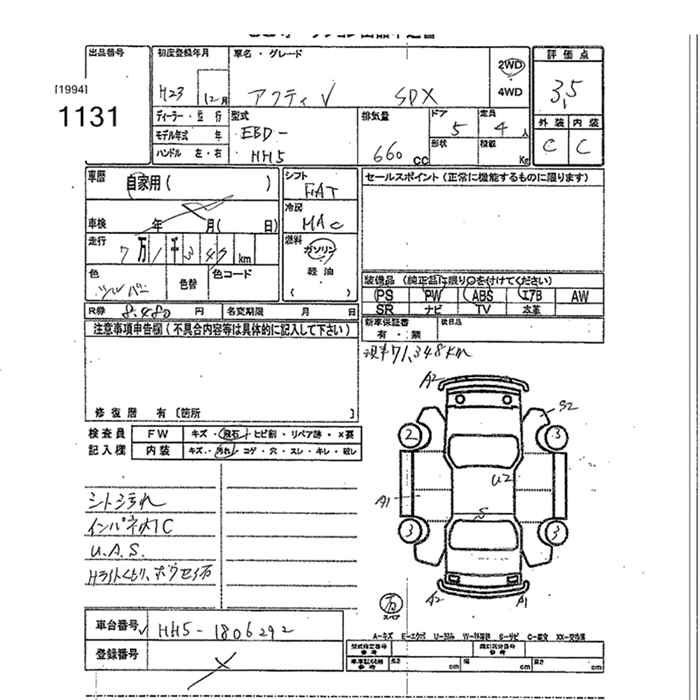 出品番号 初度登録年月 車名・グレード 2WD 評価点
[1994] H23 12月 アクティV SDX 4WD 3,5
1131
ディーラー・並行 型式 排気量 ドア 5 定員 4人 外装 内装
モデル年式 年 EBD- 形状 積載 C C
ハンドル 左・右 HH5 660cc Kg
車歴 自家用( ) シフト FAT セールスポイント(正常に機能するものに限ります)
車検 年 月( 日) 冷房 MAC
走行 7万1千3 4 km 燃料 ガソリン
色 シルバー 色替 色コード 軽油
( ) 装備品(純正品に限り○を付けてください)
PS PW ABS エアB AW
R券 8.480 円 名変期限 月 日 SR ナビ TV 本革
注意事項申告欄(不具合内容等は具体的に記入して下さい) 新車保証書 後日品
有・無
71,348km
修復歴 有〔箇所 〕
検査員 FW キズ・飛石・ヒビ割・リペア跡・X要
記入欄 内装 キズ・汚れ・コゲ・穴・スレ・キレ・欠レ
A2
S2
2 3
U2
A1
S
3 3
A2 A1
シート汚れ
インパネ内1C
U.A.S.
スペア
車台番号 HH5-1806292
A-キズ E-エクボ U-凹み W-補修跡 S-サビ C-腐食 XX-交換済
登録番号
型式指定番号 類別区分番号
長さ cm 幅 cm 高さ cm